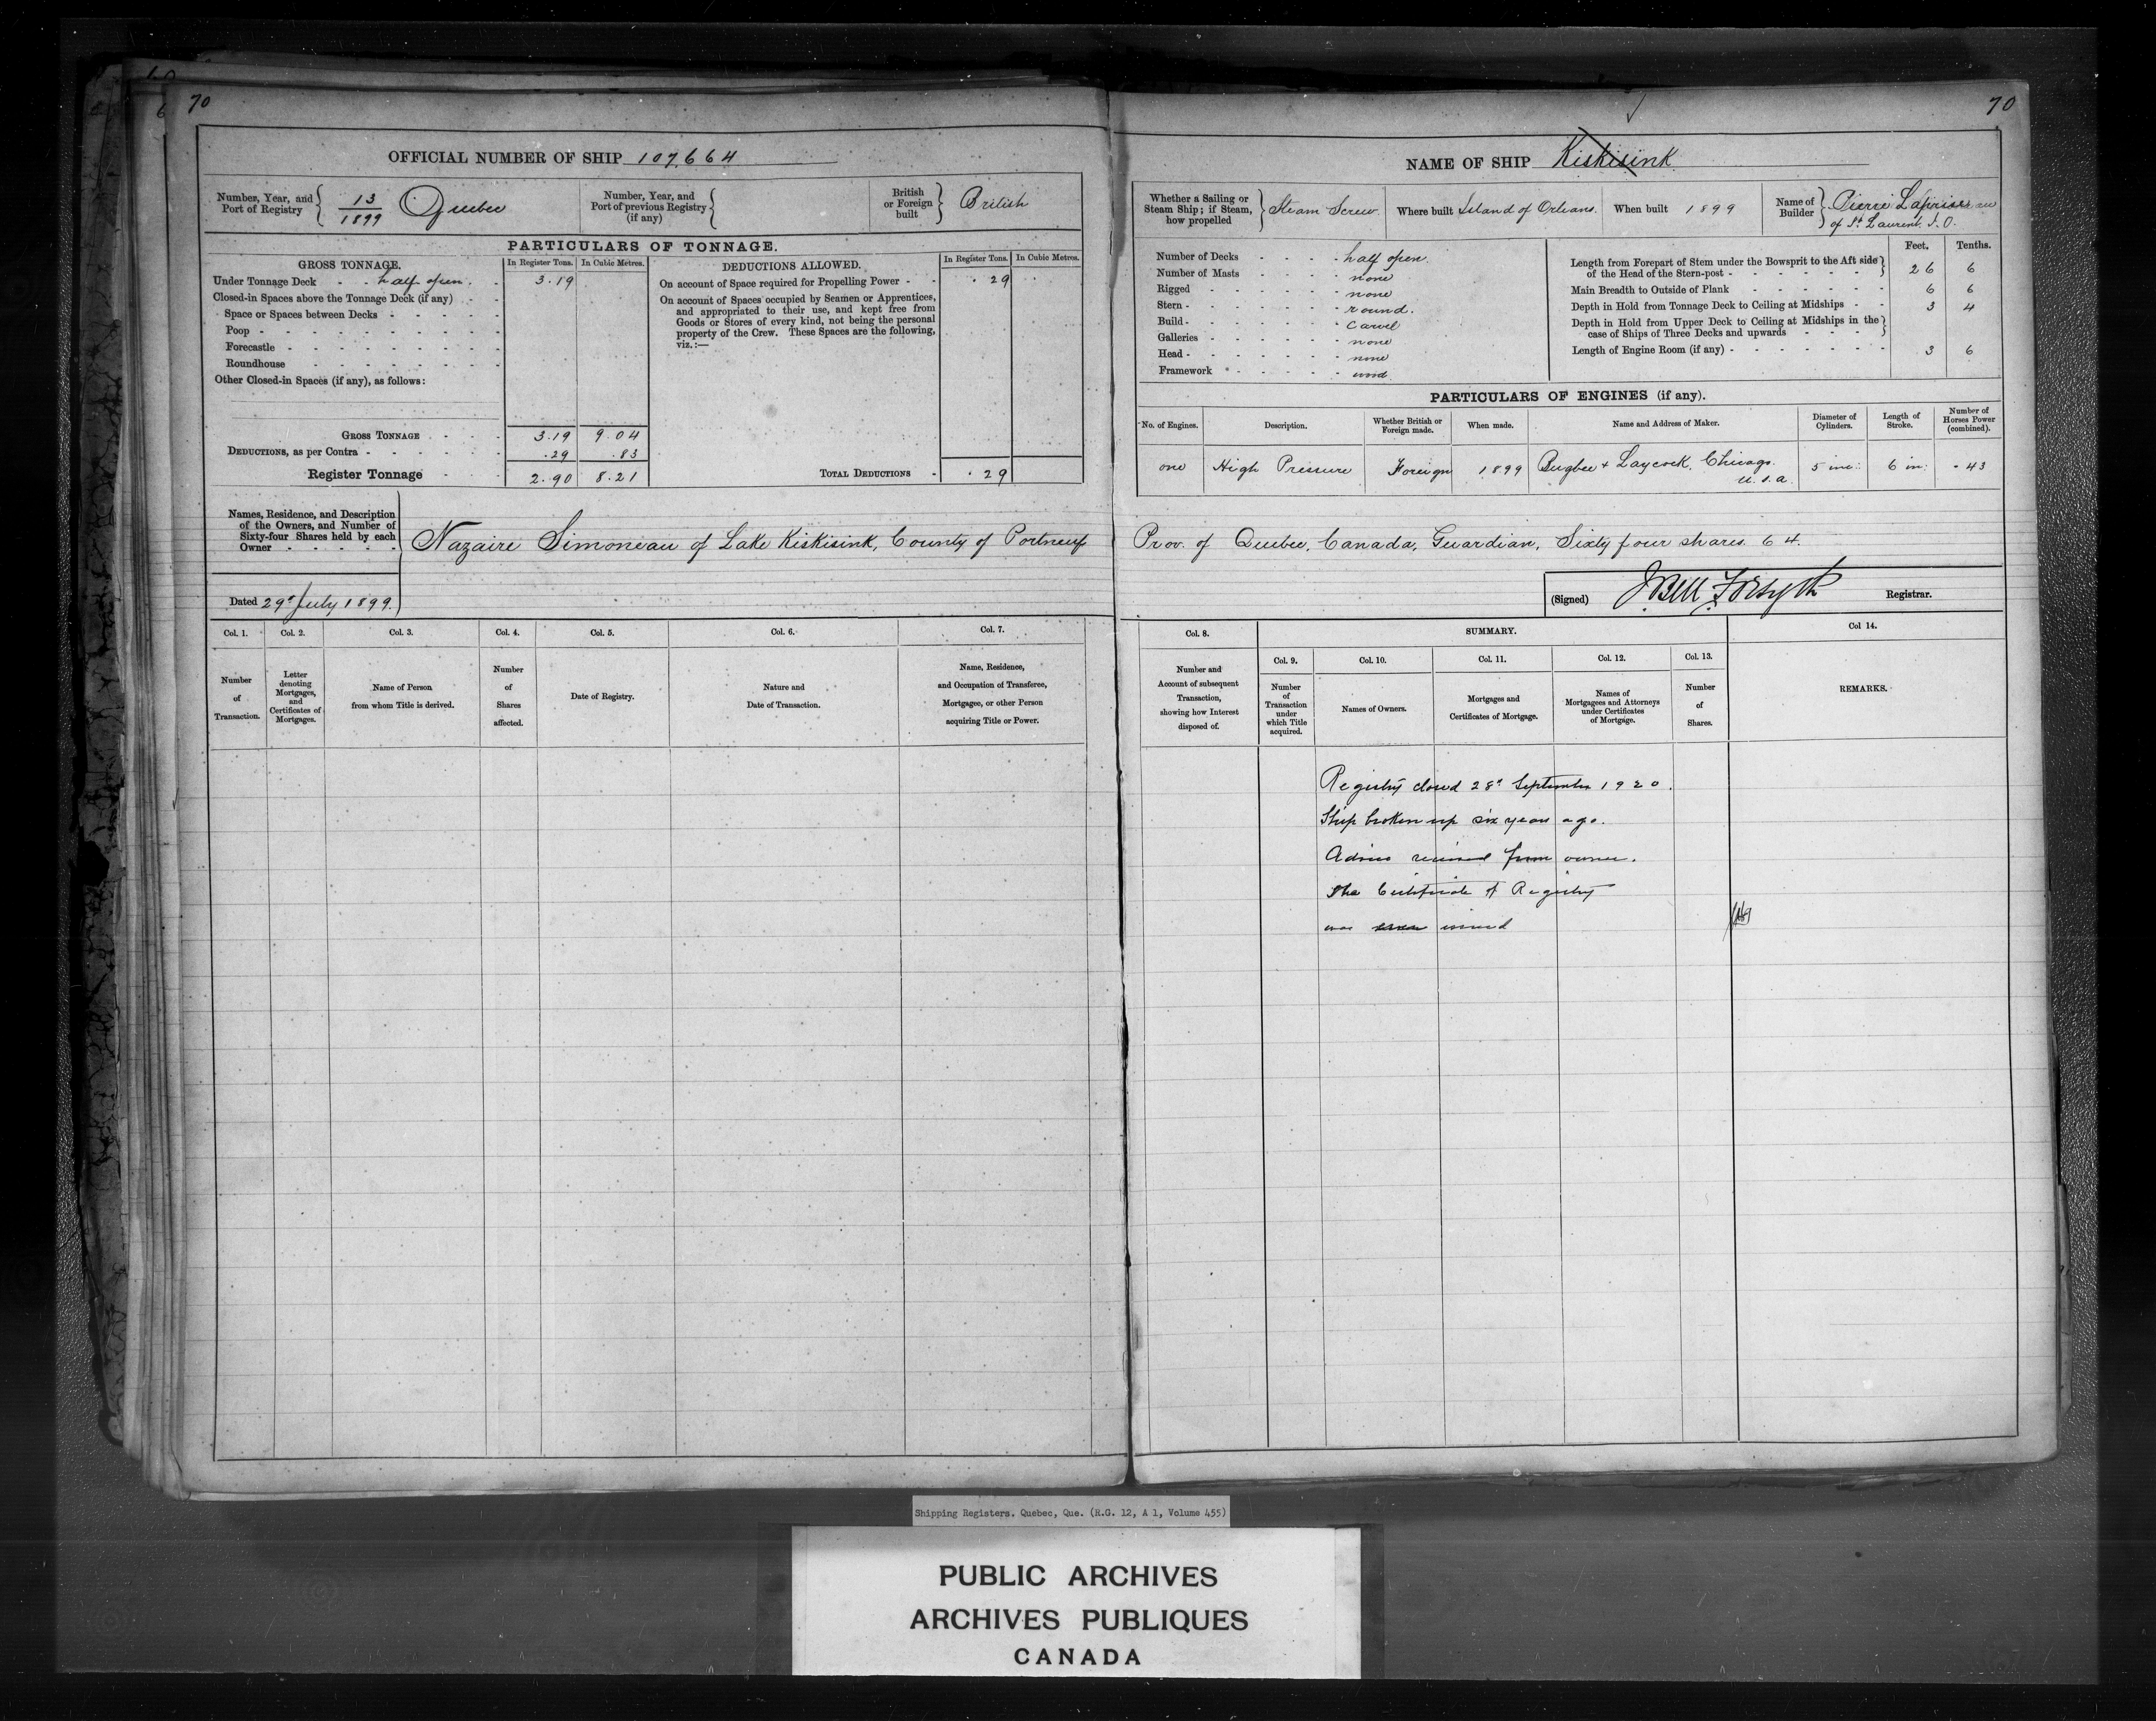 70
70
OFFICIAL NUMBER OF SHIP 107,664
Number, Year, and Port of Registry { 13/1899 Quebec
Number, Year, and Port of previous Registry (if any) {
British or Foreign built } British
PARTICULARS OF TONNAGE.
GROSS TONNAGE. In Register Tons. In Cubic Metres.
Under Tonnage Deck - - half open. - 3.19
Closed-in Spaces above the Tonnage Deck (if any) - -
Space or Spaces between Decks - - - - -
Poop - - - - - - - - -
Forecastle - - - - - - - -
Roundhouse - - - - - - -
Other Closed-in Spaces (if any), as follows:
GROSS TONNAGE - - - 3.19 9.04
DEDUCTIONS, as per Contra - - - - - - .29 .83
Register Tonnage - - 2.90 8.21
DEDUCTIONS ALLOWED. In Register Tons. In Cubic Metres.
On account of Space required for Propelling Power - - .29
On account of Spaces occupied by Seamen or Apprentices,
and appropriated to their use, and kept free from
Goods or Stores of every kind, not being the personal
property of the Crew. These Spaces are the following,
viz.:—
TOTAL DEDUCTIONS - .29
NAME OF SHIP Kiskisink
Whether a Sailing or Steam Ship; if Steam, how propelled } Steam Screw
Where built Island of Orleans.
When built 1899
Name of Builder }
of St. Laurent. I. O.
Number of Decks - - - - half open.
Number of Masts - - - - none
Rigged - - - - - none
Stern - - - - - - round.
Build - - - - - - carvel
Galleries - - - - - none
Head - - - - - - none
Framework - - - - - wood.
Feet. Tenths.
Length from Forepart of Stem under the Bowsprit to the Aft side of the Head of the Stern-post - - - - - - - } 26 6
Main Breadth to Outside of Plank - - - - - - 6 6
Depth in Hold from Tonnage Deck to Ceiling at Midships - - 3 4
Depth in Hold from Upper Deck to Ceiling at Midships in the case of Ships of Three Decks and upwards - - - - }
Length of Engine Room (if any) - - - - - - - 3 6
PARTICULARS OF ENGINES (if any).
No. of Engines. Description. Whether British or Foreign made. When made. Name and Address of Maker. Diameter of Cylinders. Length of Stroke. Number of Horses Power (combined).
one High Pressure Foreign 1899 Bugbee & Laycock, Chicago. 5 inc: 6 in: .43
U.S.A.
Names, Residence, and Description
of the Owners, and Number of
Sixty-four Shares held by each
Owner - - - - -
Nazaire Simoneau of Lake Kiskisink, County of Portneuf Prov. of Quebec, Canada, Guardian, Sixty four shares. 64.
Dated 29th July 1899.
(Signed) J. Bell Forsyth Registrar.
Col. 1. Col. 2. Col. 3. Col. 4. Col. 5. Col. 6. Col. 7.
Number of Transaction.
Letter denoting Mortgages, and Certificates of Mortgages.
Name of Person from whom Title is derived.
Number of Shares affected.
Date of Registry.
Nature and Date of Transaction.
Name, Residence, and Occupation of Transferee, Mortgagee, or other Person acquiring Title or Power.
Col. 8. SUMMARY. Col 14.
Number and Account of subsequent Transaction, showing how Interest disposed of.
Col. 9. Col. 10. Col. 11. Col. 12. Col. 13.
Number of Transaction under which Title acquired.
Names of Owners.
Mortgages and Certificates of Mortgage.
Names of Mortgagees and Attorneys under Certificates of Mortgage.
Number of Shares.
REMARKS.
Registry closed 28th September 1920.
Ship broken up six years ago.
Advice received from owner.
The Certificate of Registry
was issued
Shipping Registers. Quebec, Que. (R.G. 12, A 1, Volume 455)
PUBLIC ARCHIVES
ARCHIVES PUBLIQUES
CANADA